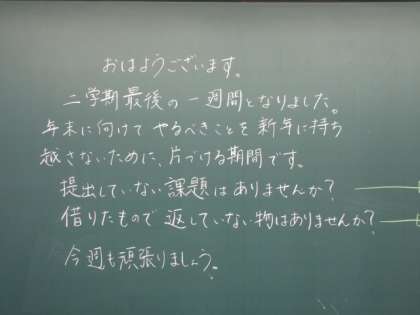 おはようございます。
二学期最後の一週間となりました。
年末に向けてやるべきことを新年に持ち
越さないために、片づける期間です。
提出していない課題はありませんか?
借りたもので返していない物はありませんか?
今週も頑張りましょう。